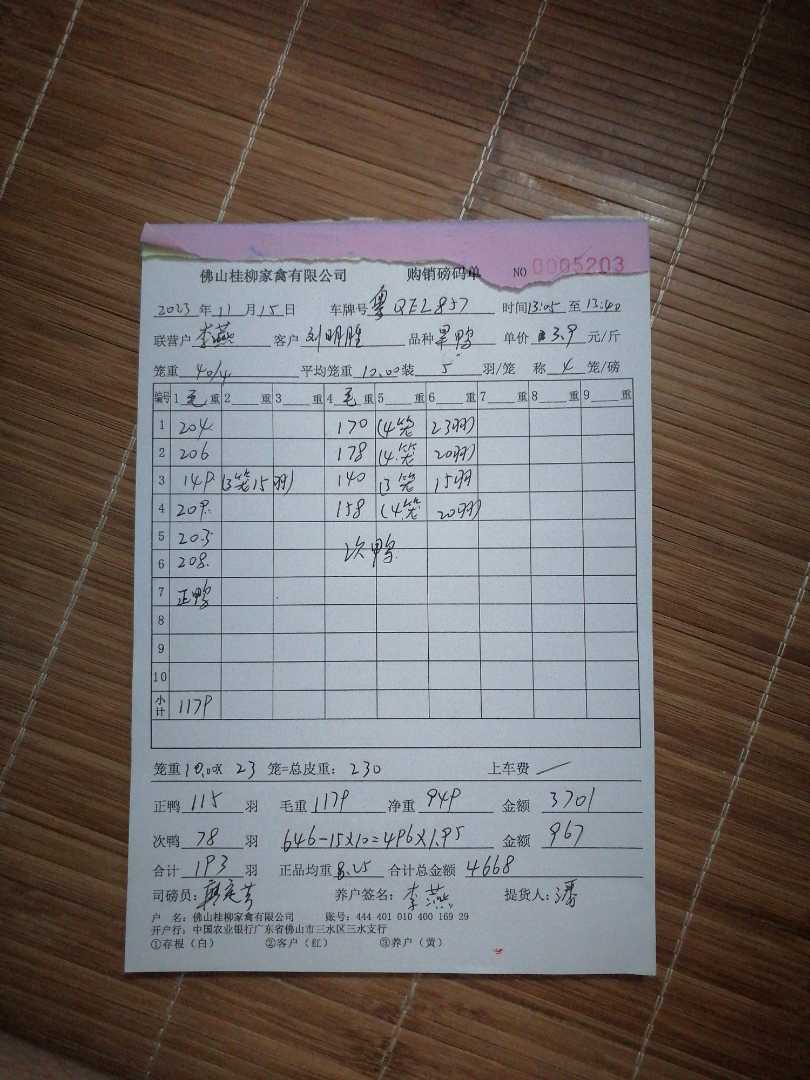 佛山桂柳家禽有限公司 购销磅码单 NO 0005203
2023 年 11 月 15 日 车牌号 粤QEL857 时间 13:05 至 13:40
联营户 李燕 客户 刘明 品种 黑鸭 单价 3.9 元/斤
笼重 40/4 平均笼重 10.00 装 5 羽/笼 称 4 笼/磅
编号 1 毛 重 2 重 3 重 4 毛 重 5 重 6 重 7 重 8 重 9 重
1 204 170 (4笼 23羽)
2 206 178 (4笼 20羽)
3 149 (3笼15羽) 140 (3笼 15羽)
4 209 158 (4笼 20羽)
5 203
6 208 次鸭
7 正鸭
8
9
10
小计 1179
笼重 10.00 x 23 笼=总皮重: 230 上车费 /
正鸭 115 羽 毛重 1179 净重 949 金额 3701
次鸭 78 羽 646-15×10=496×1.95 金额 967
合计 193 羽 正品均重 8.25 合计总金额 4668
司磅员: 养户签名: 李燕 提货人: 潘
户 名: 佛山桂柳家禽有限公司 账号: 444 401 010 400 169 29
开户行: 中国农业银行广东省佛山市三水区三水支行
①存根(白) ②客户(红) ③养户(黄)